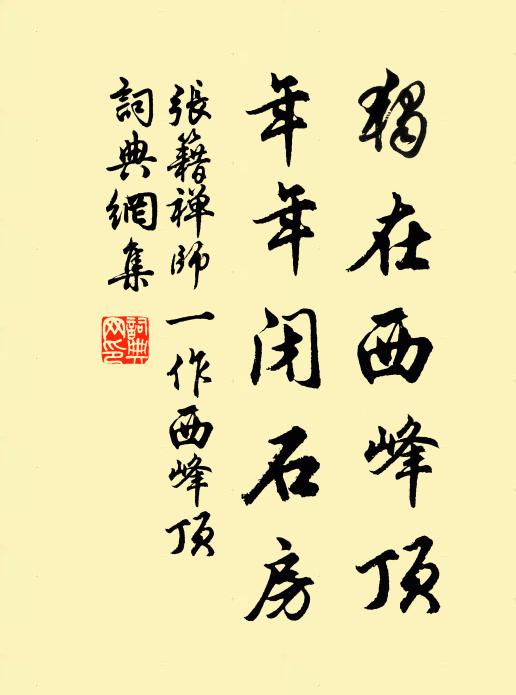 獨在西峰頂
年年闭石房
張籍禅師一作西峰頂
詞典網集
詞典网印